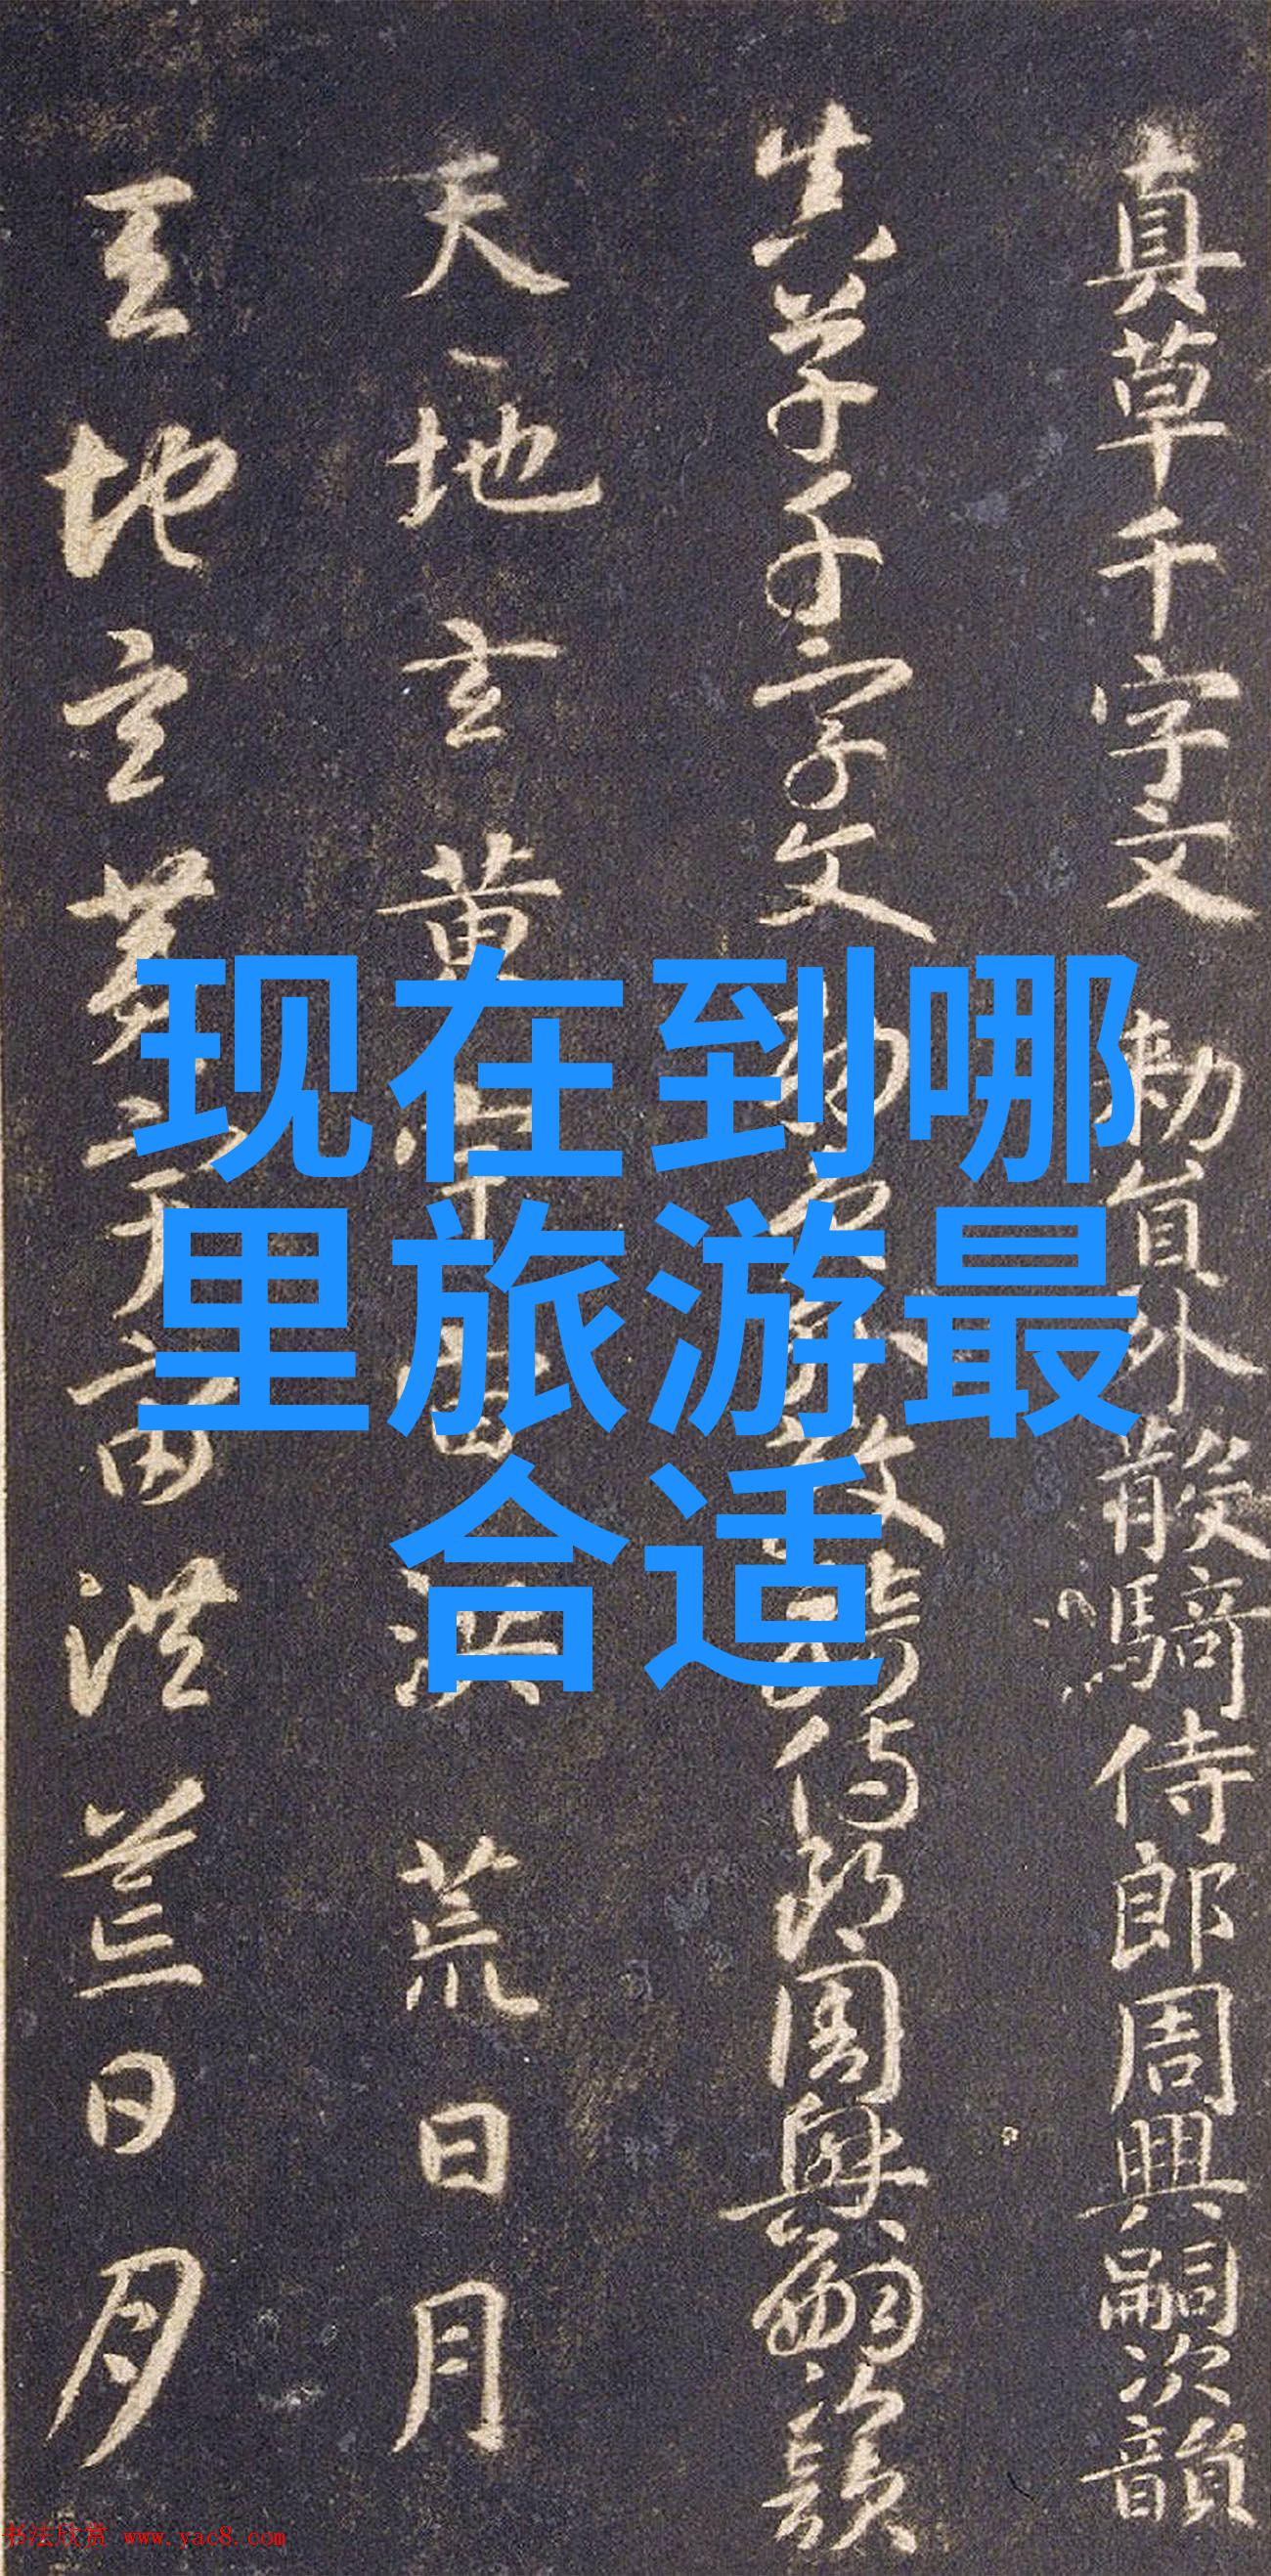 真草千字文
勅員外散騎侍郎周興嗣次韻
真草千字文
侍郎周興嗣次韻
天地玄黄宇宙洪荒日月
天地玄黄宇宙洪荒日月
现在到哪
里旅游最
合适
书法欣赏 www.yac8.com